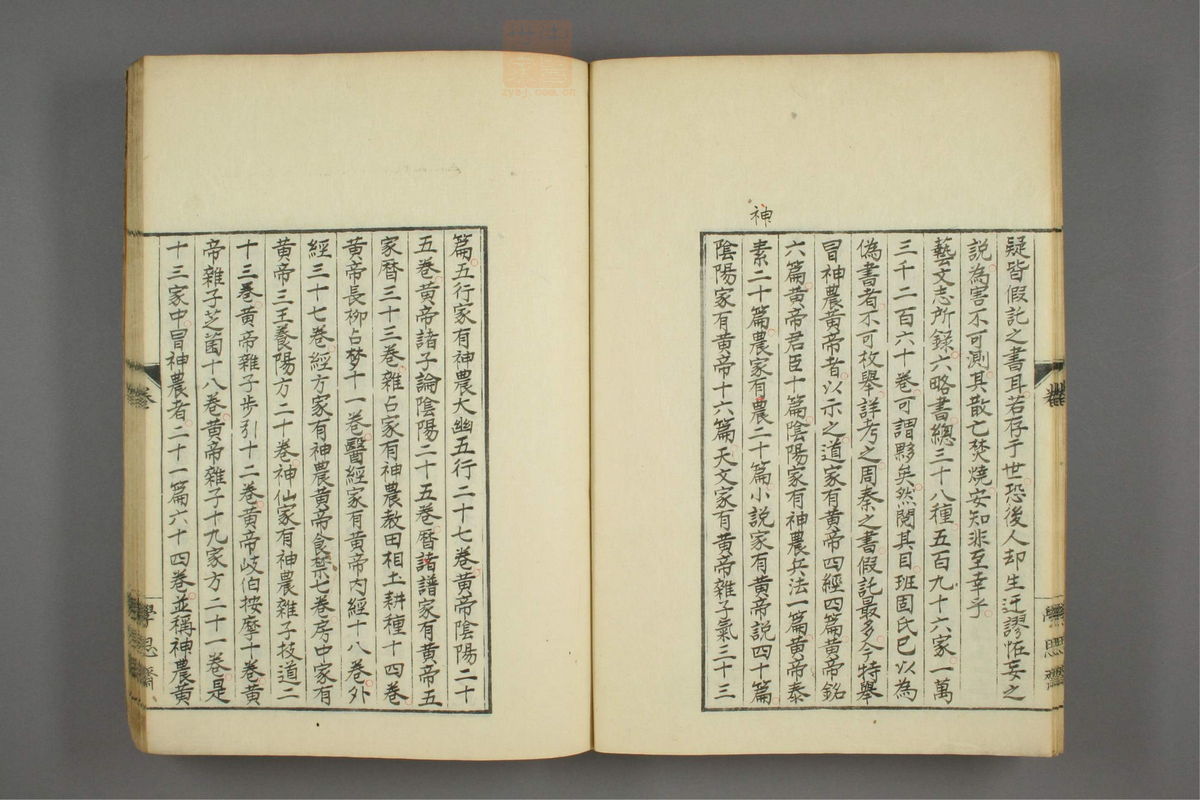 疑皆假託之書耳若存于世恐後人却生迂謬怪妄之
説為害不可測其散亡焚燒安知非至幸乎
藝文志所錄六略書總三十八種五百九十六家一萬
三千二百六十卷可謂夥矣然閱其目班固氏已以為
偽書者不可枚舉詳考之周秦之書假託最多今特舉
冒神農黃帝者以示之道家有黃帝四經四篇黃帝銘
六篇黃帝君臣十篇陰陽家有神農兵法一篇黃帝泰
神
素二十篇農家有農二十篇小説家有黃帝説四十篇
陰陽家有黃帝十六篇天文家有黃帝雜子氣三十三
篇五行家有神農大幽五行二十七卷黃帝陰陽二十
五卷黃帝諸子論陰陽二十五卷曆諸譜家有黃帝五
家曆三十三卷雜占家有神農教田相土耕種十四卷
黃帝長柳占梦十一卷醫經家有黃帝内經十八卷外
經三十七卷經方家有神農黃帝食禁七卷房中家有
黃帝三王養陽方二十卷神仙家有神農雜子技道二
十三卷黃帝雜子步引十二卷黃帝岐伯按摩十卷黃
帝雜子芝菌十八卷黃帝雜子十九家方二十一卷是
十三家中冒神農者二十一篇六十四卷並稱神農黃
卷
zysj.com.cn